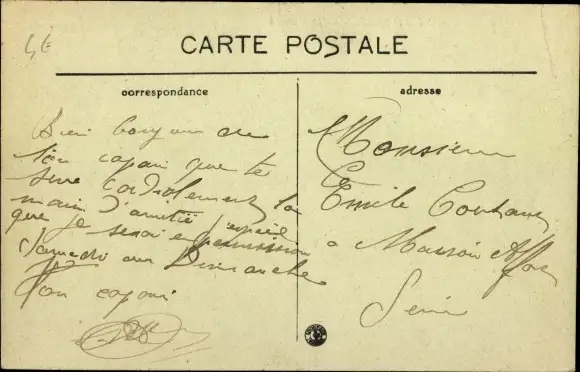 CARTE POSTALE
correspondance
adresse
Bien bonjour de
ton copain que te
serre cordialement la
main d'amitié j'espère
que je serai en permission
Samedi ou Dimanche
Ton copain
Monsieur
Emile
a Maison Alfor
Seine